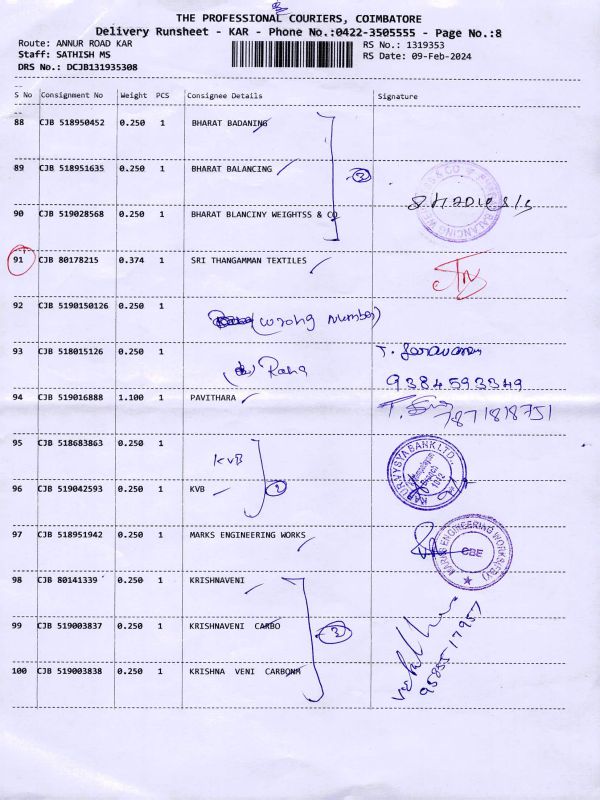 THE PROFESSIONAL COURIERS, COIMBATORE
Delivery Runsheet - KAR - Phone No.:0422-3505555 - Page No.:8
Route: ANNUR ROAD KAR RS No.: 1319353
Staff: SATHISH MS RS Date: 09-Feb-2024
DRS No.: DCJB131935308
S No Consignment No Weight PCS Consignee Details Signature
88 CJB 518950452 0.250 1 BHARAT BADANING
89 CJB 518951635 0.250 1 BHARAT BALANCING
③
90 CJB 519028568 0.250 1 BHARAT BLANCINY WEIGHTSS & CO
91 CJB 80178215 0.374 1 SRI THANGAMMAN TEXTILES
92 CJB 5190150126 0.250 1 (wrong number)
93 CJB 518015126 0.250 1 Raha T. Saravanan
9384593349
94 CJB 519016888 1.100 1 PAVITHARA
7871818751
95 CJB 518683863 0.250 1 KVB
KARUR VYSYA BANK LTD.,
②
96 CJB 519042593 0.250 1 KVB
97 CJB 518951942 0.250 1 MARKS ENGINEERING WORKS
MARKS ENGINEERING WORKS(CBE)
CBE
98 CJB 80141339 0.250 1 KRISHNAVENI
99 CJB 519003837 0.250 1 KRISHNAVENI CARBO
③
9585517957
100 CJB 519003838 0.250 1 KRISHNA VENI CARBONA